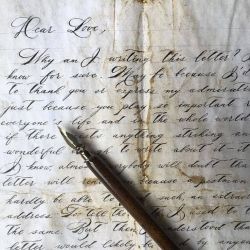 Dear Love,
Why am I writing this letter? I
know for sure. May be because I
to thank you or express my admirati
just because you play so important
everyone's life and in the whole world
if there exists anything striking an
wonderful to write about - it
I know, almost everybody will doubt the
letter will because a postman
hardly be able to such an extra
address. To tell the I used to
the same. But then understood tha
letter would likely